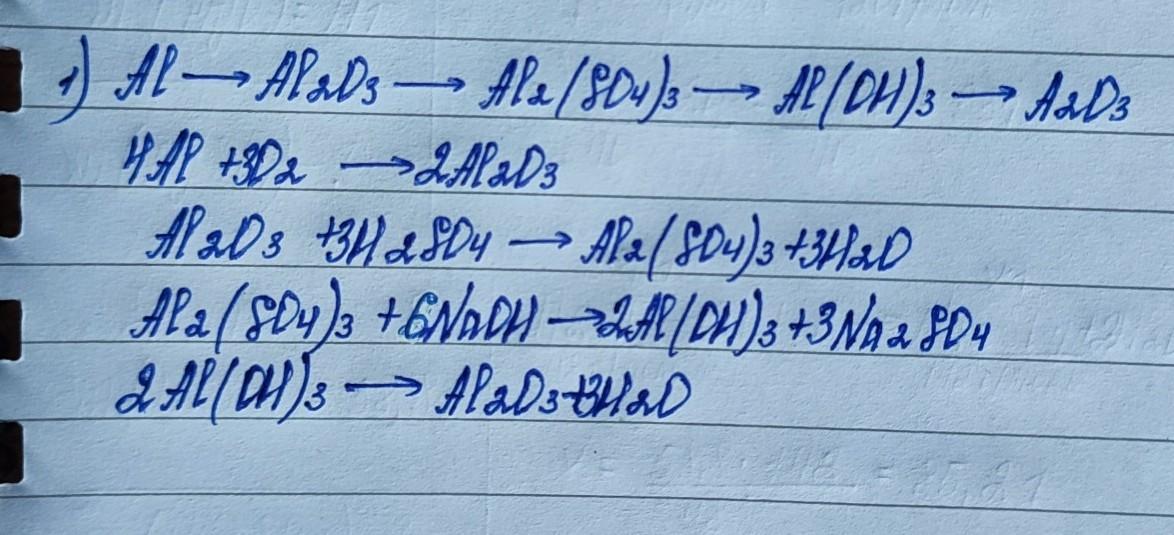 1) Al → Al2O3 → Al2(SO4)3 → Al(OH)3 → A2O3
4Al +3O2 → 2Al2O3
Al2O3 +3H2SO4 → Al2(SO4)3+3H2O
Al2(SO4)3 +6NaOH → 2Al(OH)3+3Na2SO4
2Al(OH)3 → Al2O3+3H2O